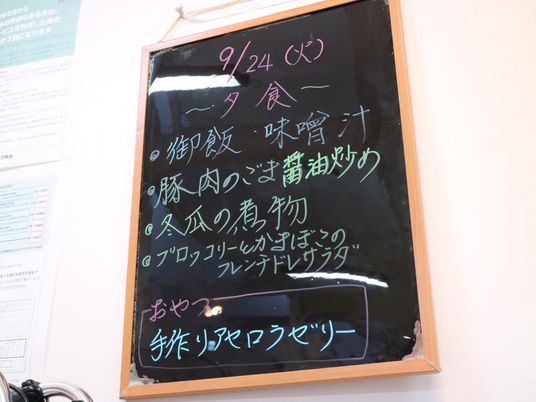 9/24 (火)
～夕食～
御飯 味噌汁
豚肉のごま醤油炒め
冬瓜の煮物
ブロッコリーとかまぼこの
フレンチドレサラダ
おやつ
手作りアセロラゼリー